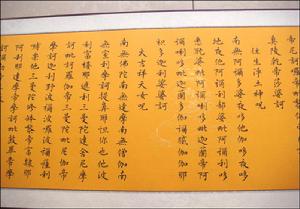 莫隸乾帝莎婆訶
往生淨土神咒
南無阿彌多婆夜哆他伽哆夜哆
地夜他阿彌利都婆毗阿彌利哆
悉耽婆毗阿彌唎哆毗迦蘭帝阿
彌唎哆毗迦蘭多伽彌膩伽伽那
枳多迦利娑婆訶
大吉祥天女咒
南無佛陀南無達摩南無僧伽南
無室利摩訶提鼻耶怛你也他波
利富樓那遮利三曼陀達舍尼摩
訶毗訶羅伽帝三曼陀毗尼伽帝
摩訶迦利野波禰波囉波禰薩利
嚩栗他三曼陀修缽黎帝富隸那
阿利那達摩帝摩訶毗鼓畢帝摩